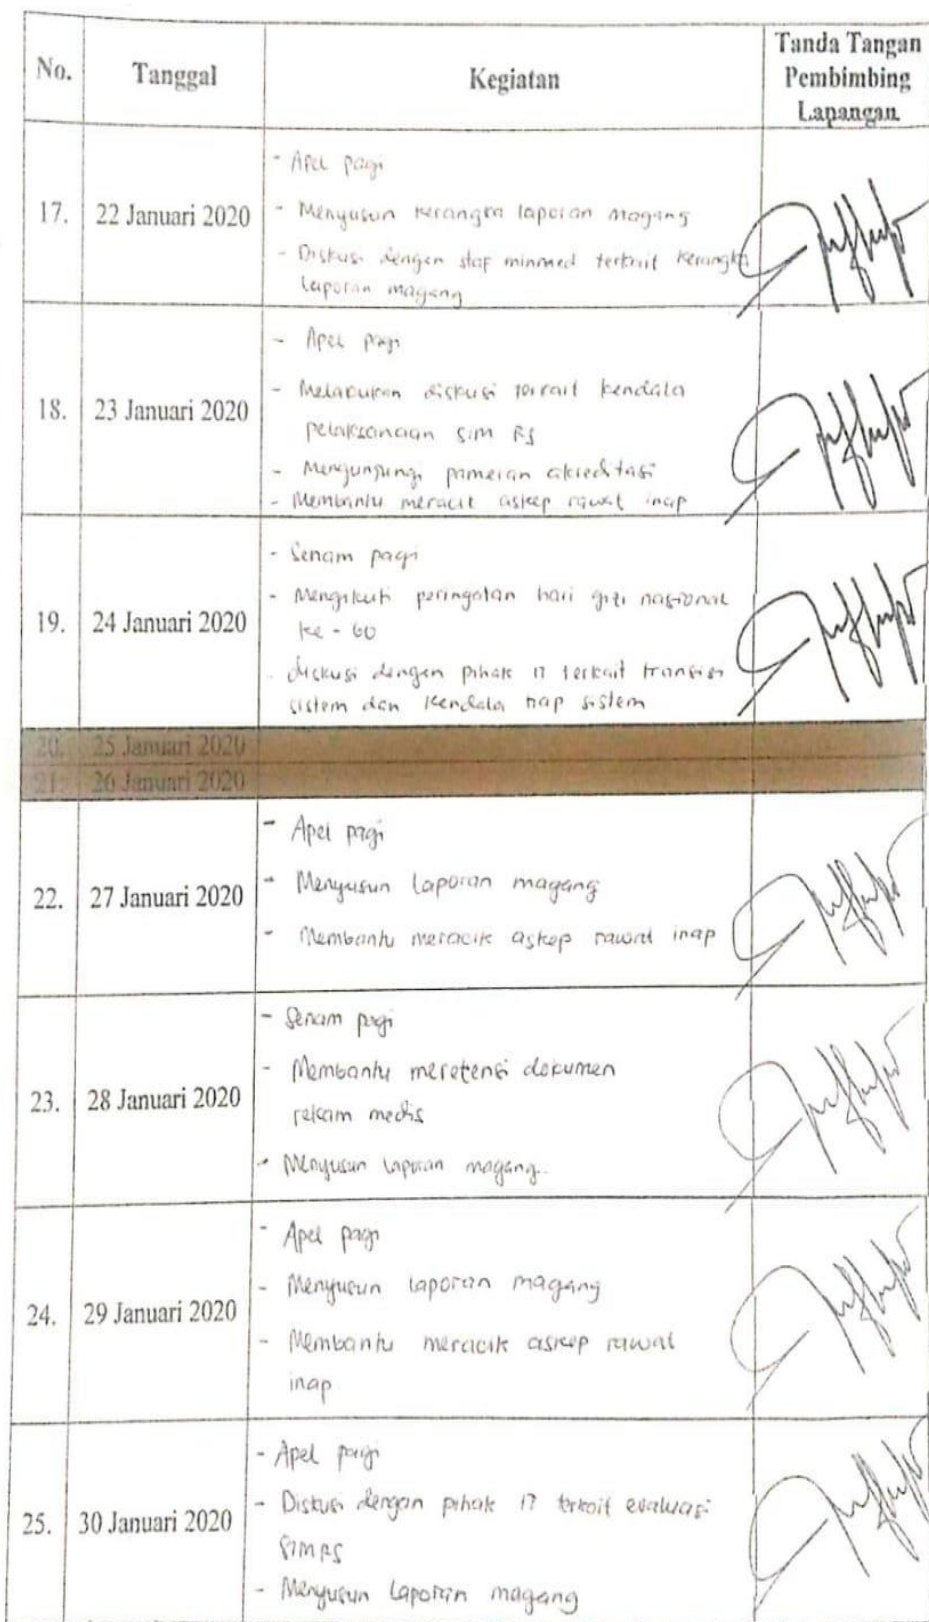 No. Tanggal Kegiatan Tanda Tangan
Pembimbing
Lapangan
17. 22 Januari 2020
- Apel pagi
- Menyusun kerangka laporan magang
- Diskusi dengan staf minmed terkait kerangka
laporan magang
18. 23 Januari 2020
- Apel pagi
- Melakukan diskusi terkait kendala
pelaksanaan SIM RS
- Mengunjungi pameran akreditasi
- Membantu meracik askep rawat inap
19. 24 Januari 2020
- Senam pagi
- Mengikuti peringatan hari gizi nasional
ke - 60
- diskusi dengan pihak IT terkait transisi
sistem dan kendala tiap sistem
20. 25 Januari 2020
21. 26 Januari 2020
22. 27 Januari 2020
- Apel pagi
- Menyusun laporan magang
- Membantu meracik askep rawat inap
23. 28 Januari 2020
- Senam pagi
- Membantu meretensi dokumen
rekam medis
- Menyusun laporan magang.
24. 29 Januari 2020
- Apel pagi
- Menyusun laporan magang
- Membantu meracik askep rawat
inap
25. 30 Januari 2020
- Apel pagi
- Diskusi dengan pihak IT terkait evaluasi
SIMRS
- Menyusun laporan magang